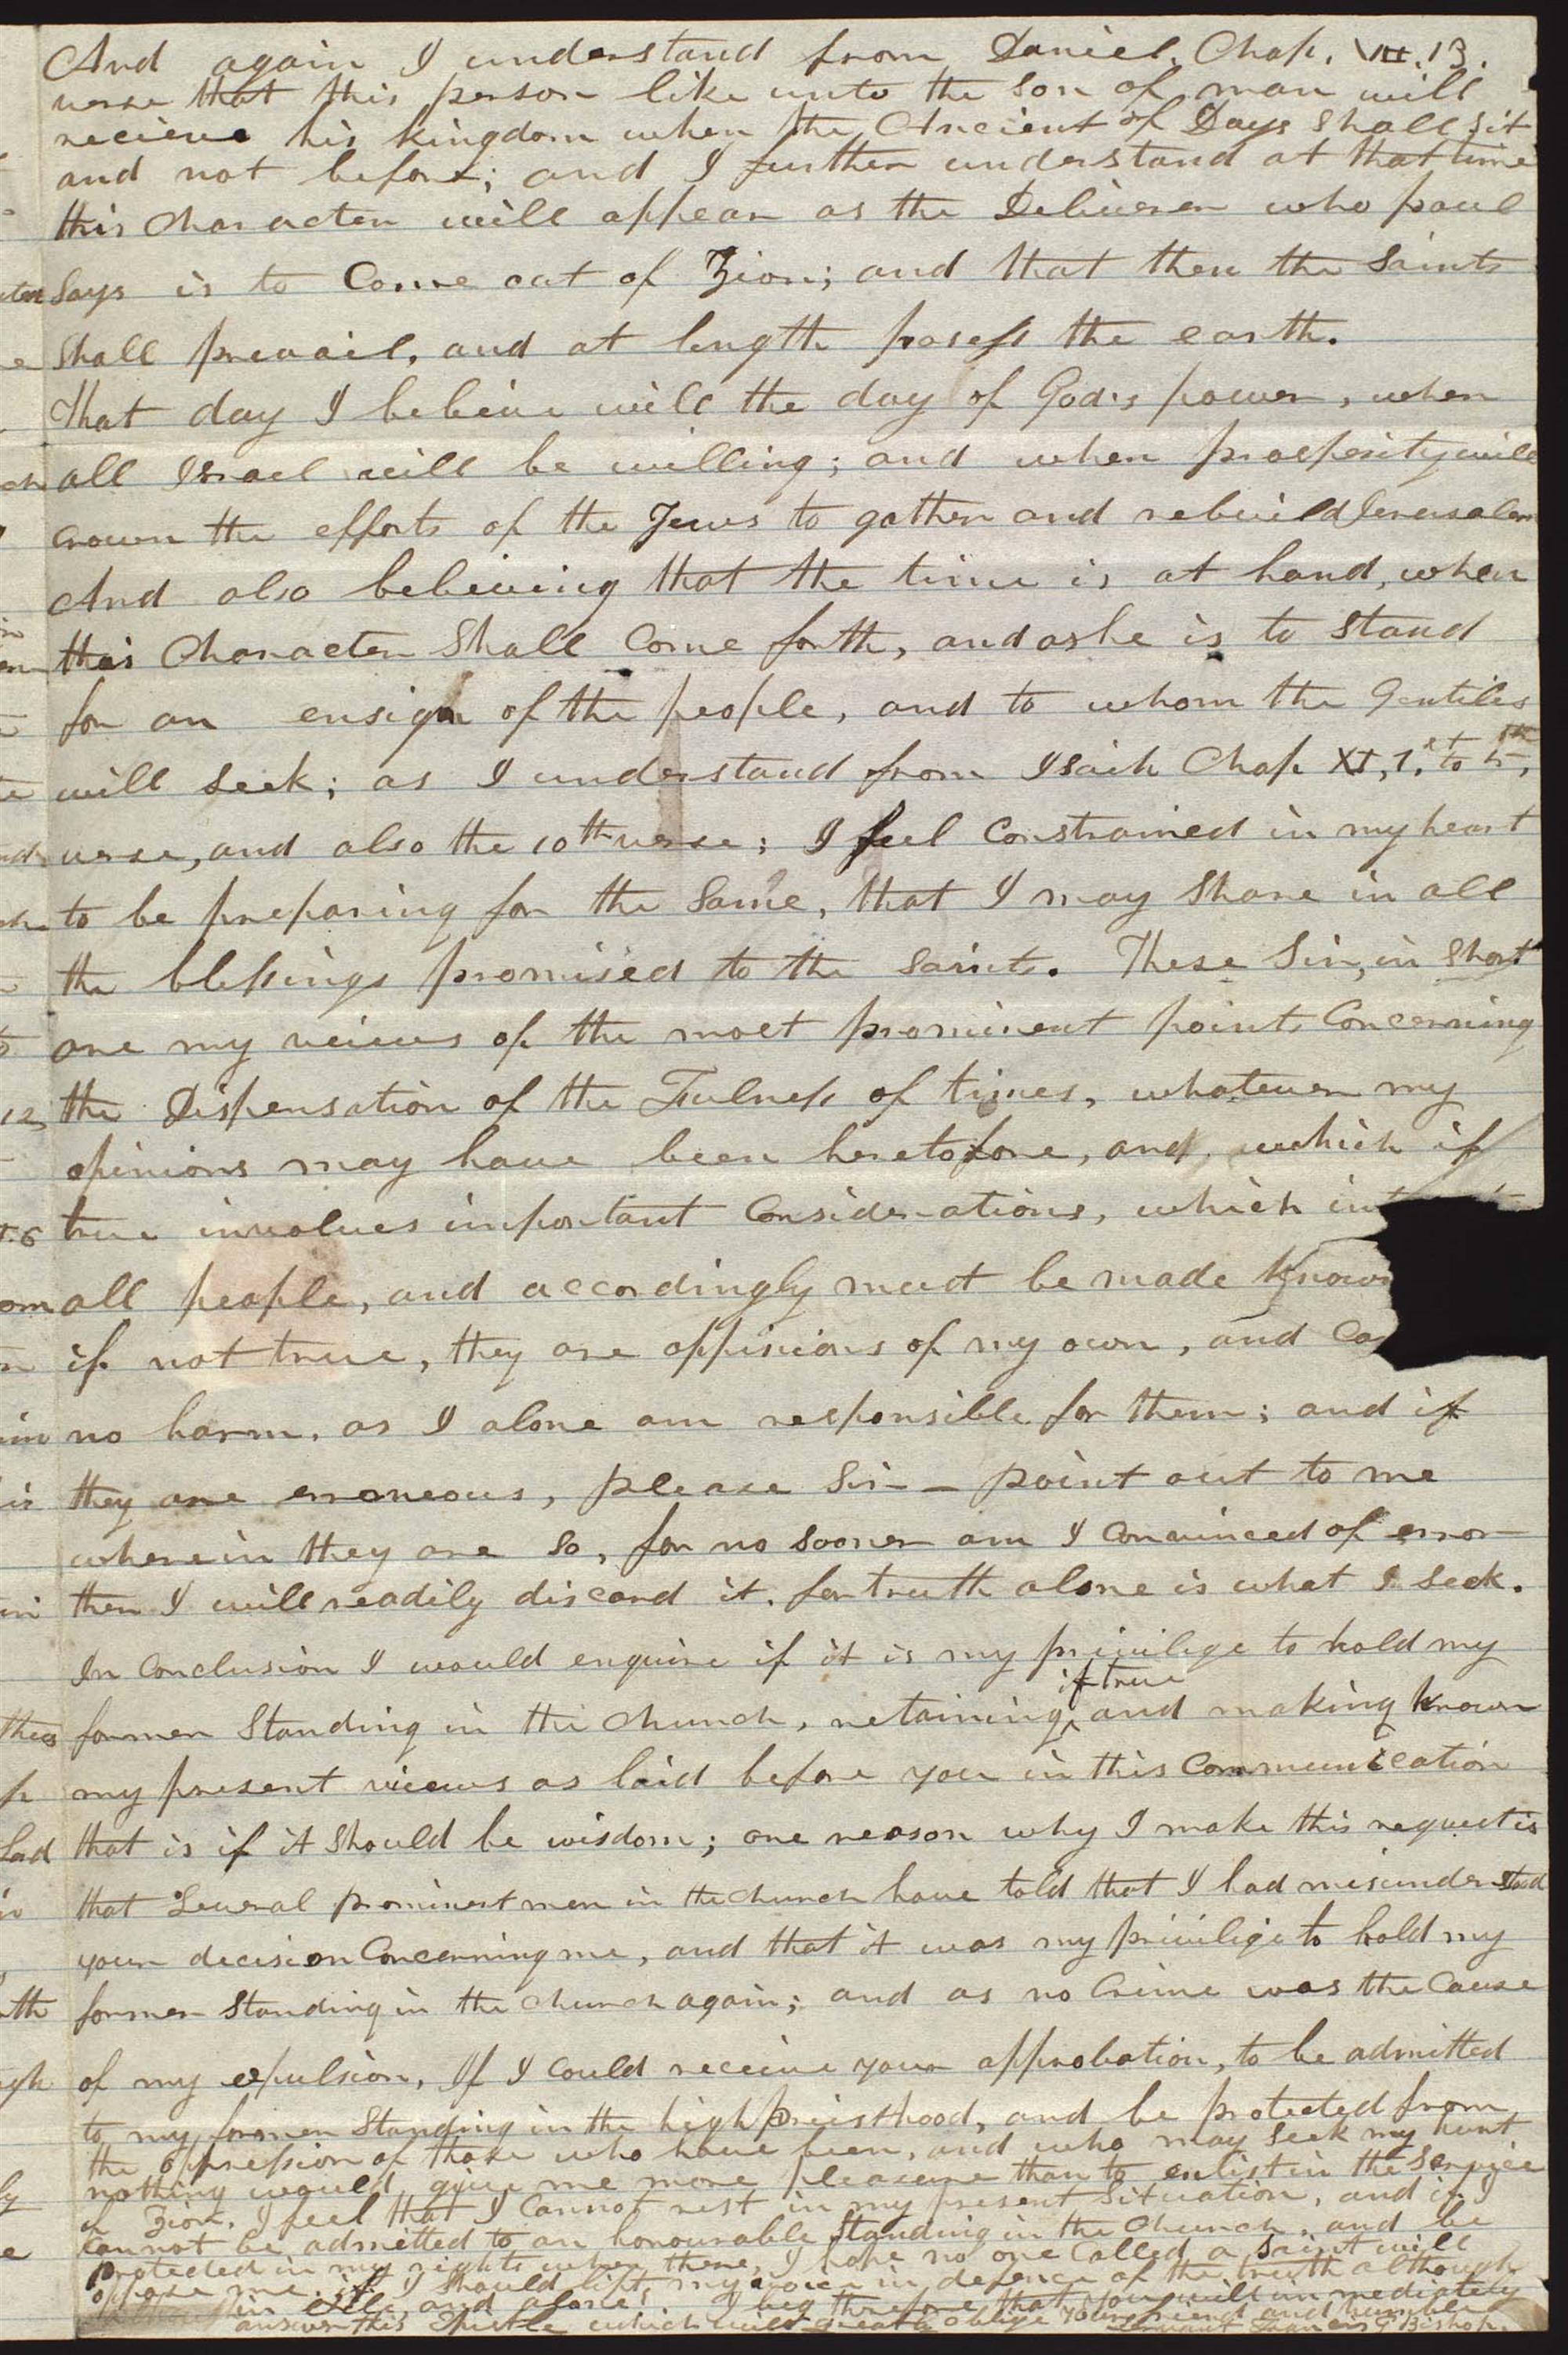 And again I understand from Daniel, Chap. VII. 13.
verse that this person like unto the Son of man will
recieve his kingdom when the Ancient of Days Shall sit
and not before; and I further understand at that time
this Character will appear as the Deliverer who paul
Says is to Come out of Zion; and that then the Saints
Shall prevail, and at length posess the earth.
That day I believe will the day of God's power, when
all Israel will be willing; and when prosperity will
crown the efforts of the Jews to gather and rebuild Jerusalem
And also believing that the time is at hand, when
this Character Shall Come forth, and as he is to stand
for an ensign of the people, and to whom the Gentiles
will seek; as I understand from Isaih Chap XI, 1.st to 5th,
verse, and also the 10th verse; I feel Constrained in my heart
to be preparing for the Same, that I may Share in all
the blessings promised to the Saints. These Sir, in Short
are my veiws of the most prominent points Concerning
the Dispensation of the Fulness of times, whatever my
opinions may have been heretofore, and, which if
true involves important Considerations, which
all people, and accordingly must be made Known
if not true, they are oppinions of my own, and
no harm, as I alone am responsible for them; and if
they are erroneous, please Sir — point out to me
wherein they are so, for no sooner am I Convinced of error
then I will readily discard it. for truth alone is what I seek.
In Conclusion I would enquire if it is my privilege to hold my
if true
former Standing in the Church, retaining ^ and making known
my present views as laid before you in this Communication
that is if it Should be wisdom; one reason why I make this request is
that Several prominent men in the Church have told that I had misunderstood
your decision Concerning me, and that it was my privilige to hold my
former Standing in the Church again; and as no Crime was the Cause
of my expulsion, If I Could receive your approbation, to be admitted
to my former Standing in the high Priesthood, and be protected from
the oppression of those who have been, and who may seek my hurt
nothing would give me more pleasure than to enlist in the Service
of Zion. I feel that I Cannot rest in my present Situation, and if I
Cannot be admitted to an honourable Standing in the Church, and be
protected in my rights when there, I hope no one Called a Saint will
oppose me if I should lift my voice in defence of the truth although
in exile and alone. I beg therefore that you will immediately
answer this Epistle which will greatly oblige your friend and humble
Servant Francis G Bishop.